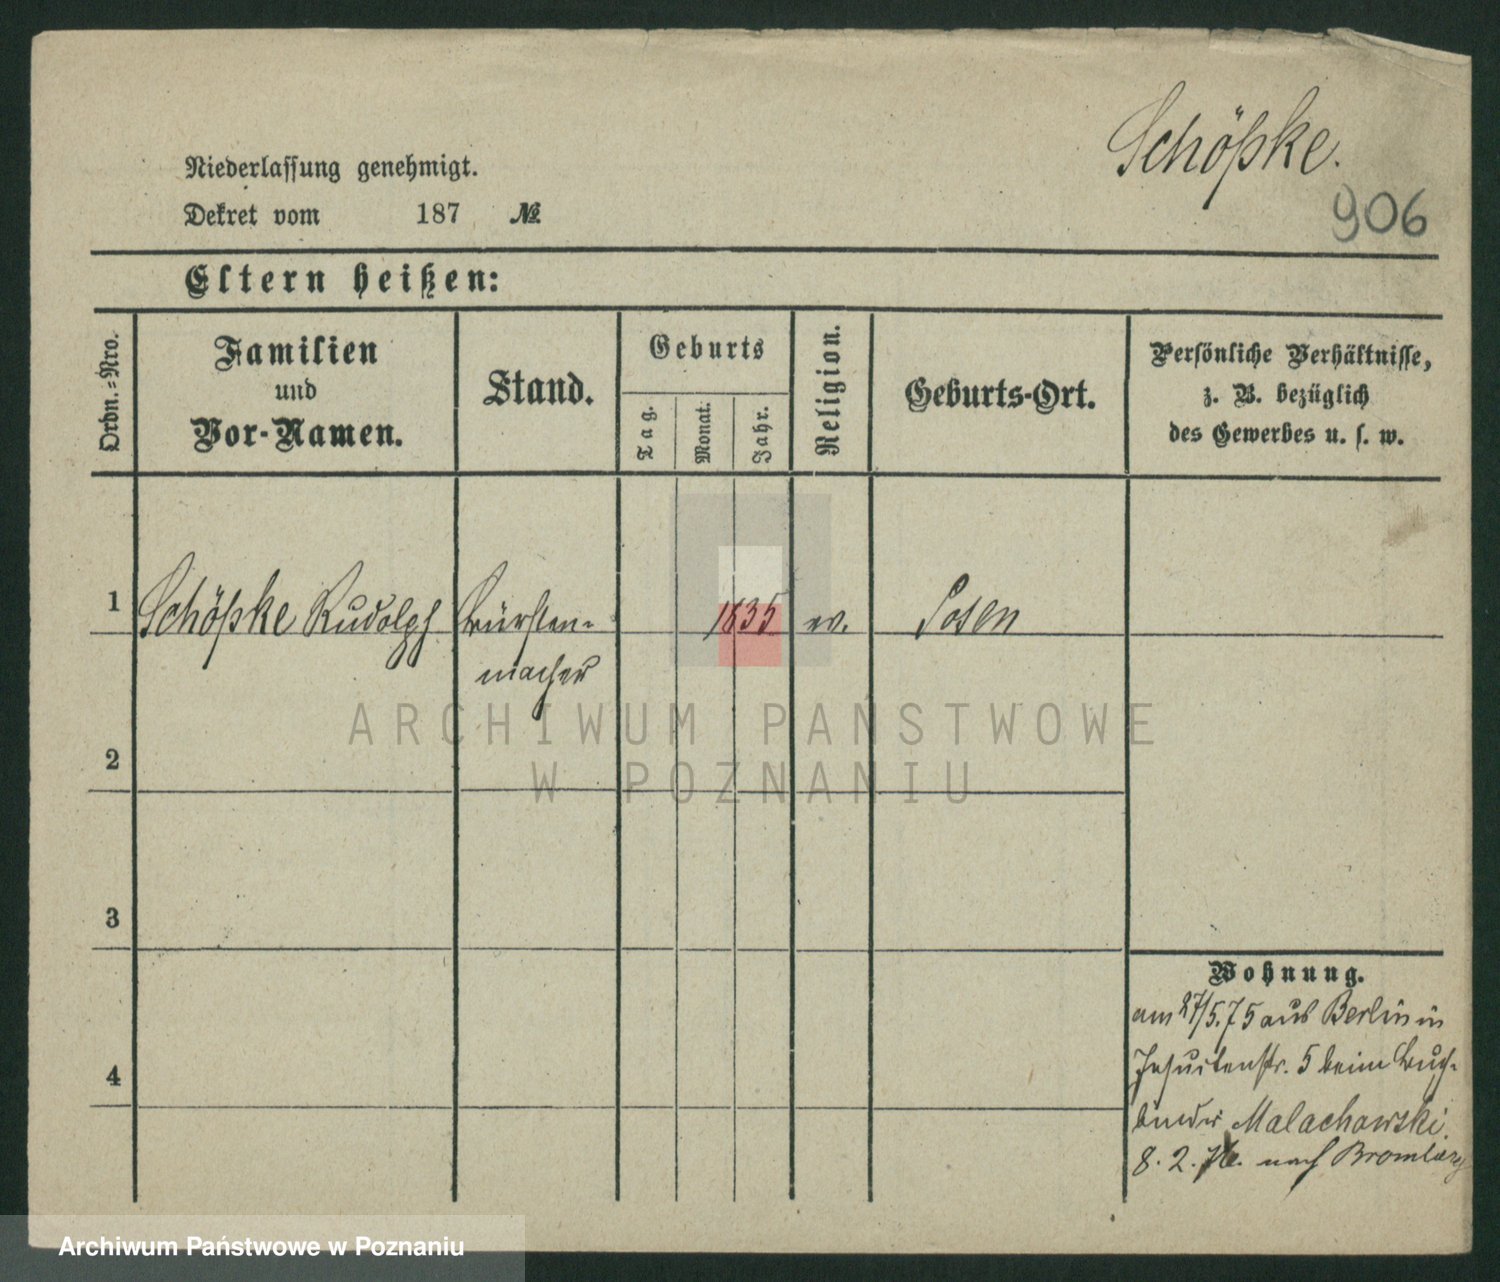 Schöpke.
906
Niederlassung genehmigt.
Dekret vom 187 №
Eltern heißen:
Ordn.=Nro.
Familien
und
Vor-Namen.
Stand.
Geburts
Tag.
Monat.
Jahr.
Religion.
Geburts-Ort.
Persönliche Verhältnisse,
z. B. bezüglich
des Gewerbes u. s. w.
1 Schöpke Rudolph Bürsten- 1835 ev. Posen
macher
ARCHIWUM PAŃSTWOWE
W POZNANIU
2
3
4
Wohnung.
am 27/5.75 aus Berlin in
Jesuitenstr. 5 beim Buch-
binder Malachowski.
8. 2. 76. nach Bromberg
Archiwum Państwowe w Poznaniu